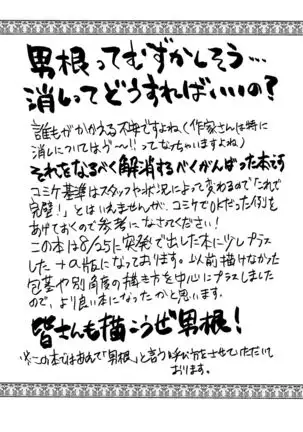 男根ってむずかしそう…
消しってどうすればいいの？
誰もがかかえる不安ですよね(作家さんは特に
消しについてはう〜!!ってなっちゃいますよね)
それをなるべく解消するべくがんばった本です
コミケ基準はスタッフや状況によって変わるので「これで
完璧！」とはいえませんが、コミケでOKだった例を
あげておくので参考になさてください!
この本は8/25に突発で出した本に少しプラス
した+α版になっております。以前描けなかった
包茎や別角度の描き方を中心にプラスしました
ので、より良い本になったかと思います。
皆さんも描こうぜ男根！
※この本ではあえて「男根」と言う呼び方をさせていただいて
おります。